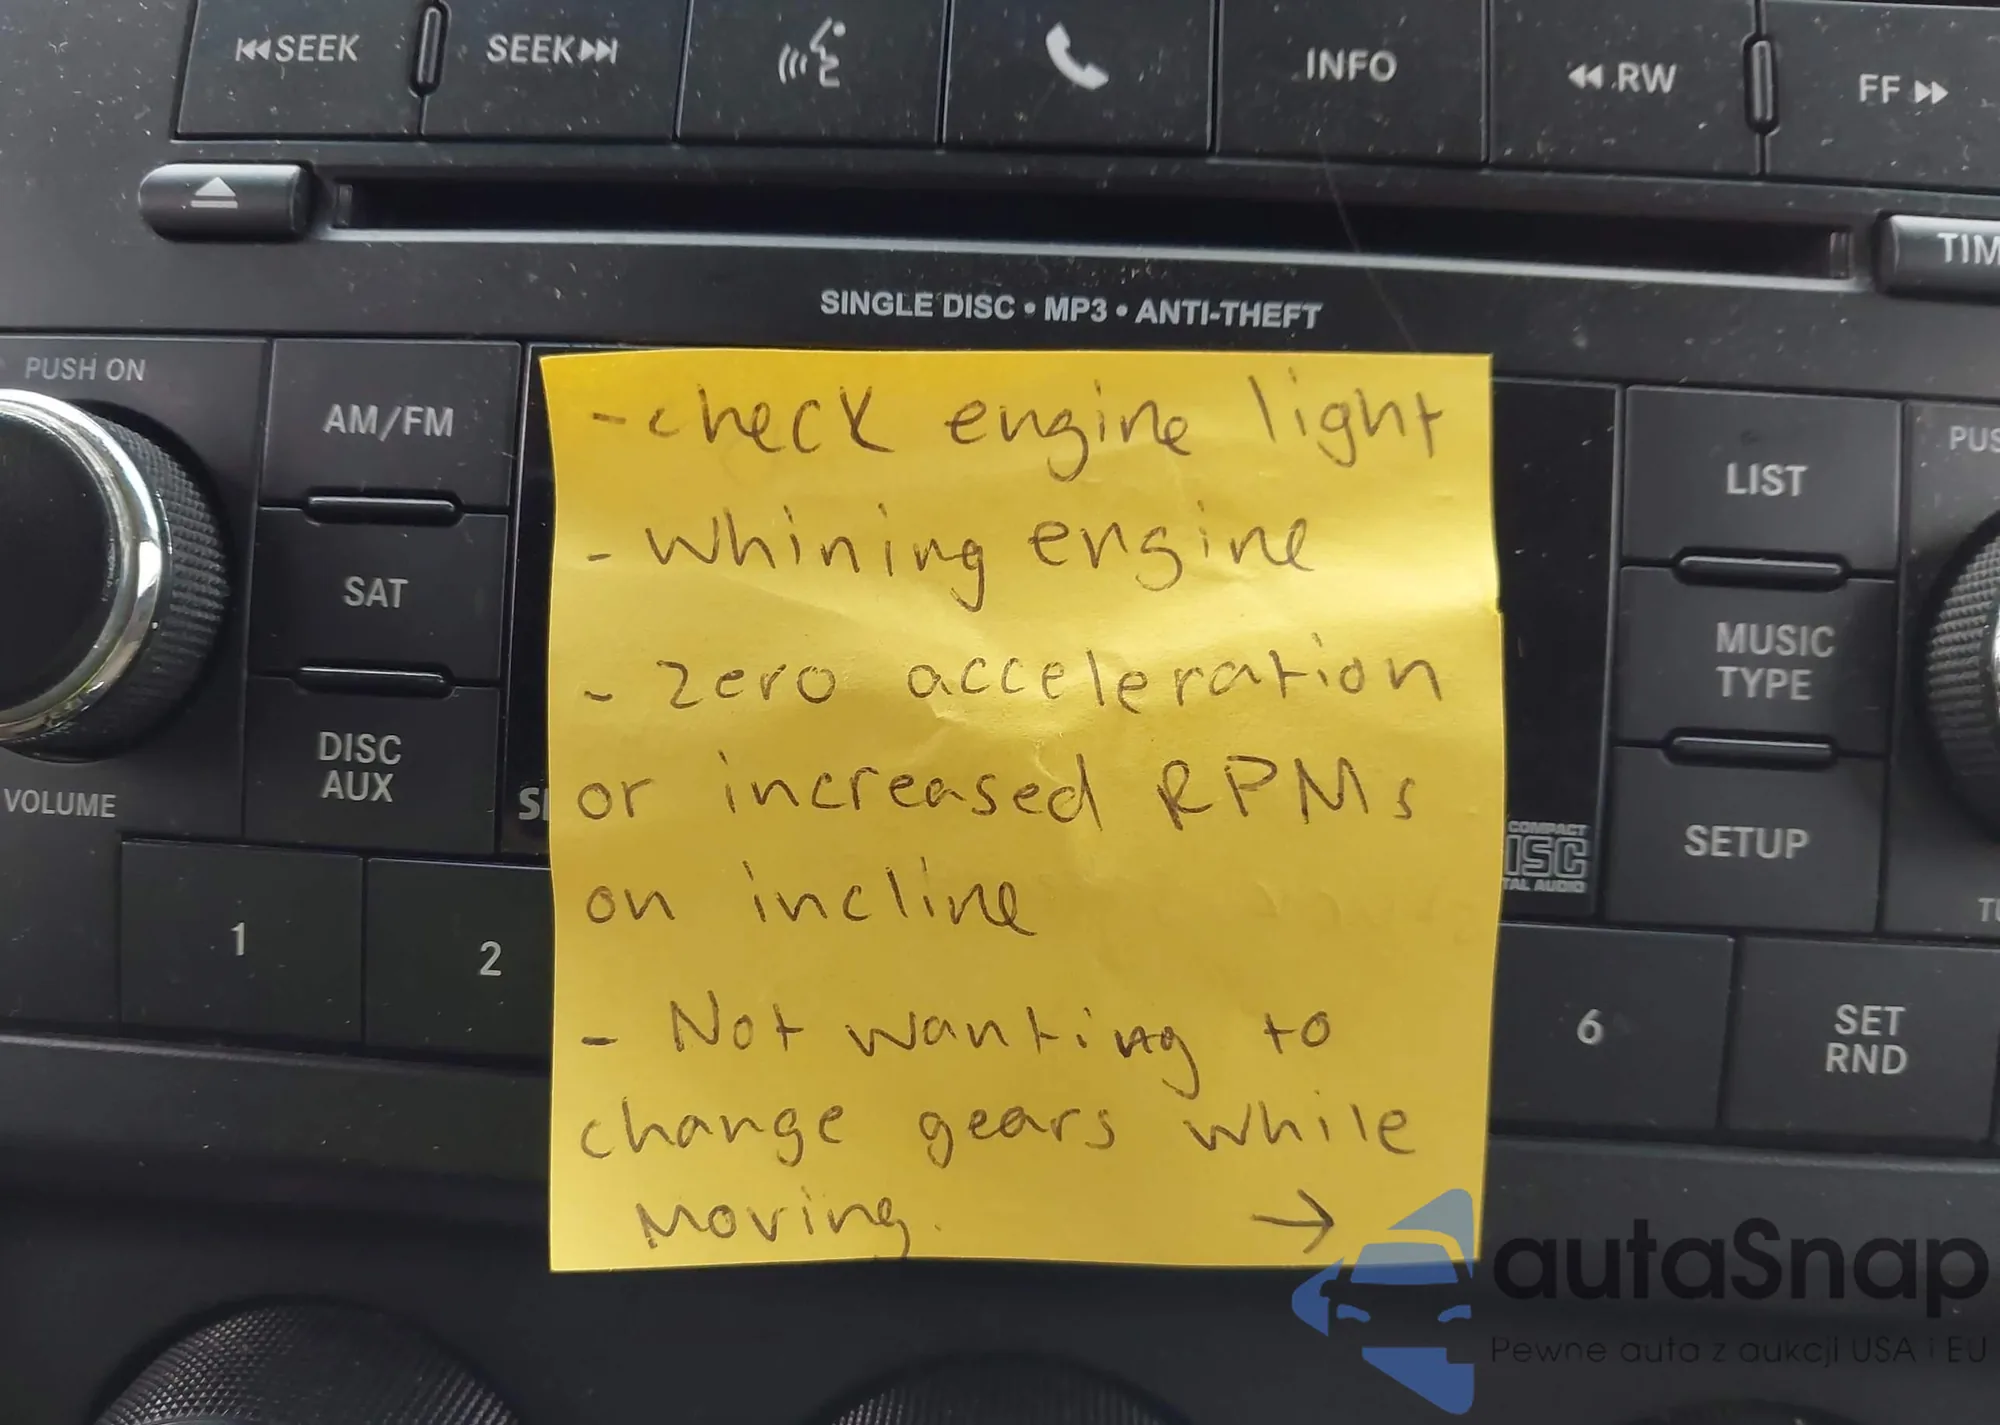 SEEK
SEEK
INFO
RW
FF
TIM
SINGLE DISC • MP3 • ANTI-THEFT
PUSH ON
AM/FM
SAT
DISC
AUX
VOLUME
1
2
- check engine light
- whining engine
- zero acceleration
or increased RPMs
on incline
- Not wanting to
change gears while
moving. →
LIST
MUSIC
TYPE
SETUP
PUS
COMPACT
DISC
TAL AUDIO
6
SET
RND
autaSnap
Pewne auta z aukcji USA i EU